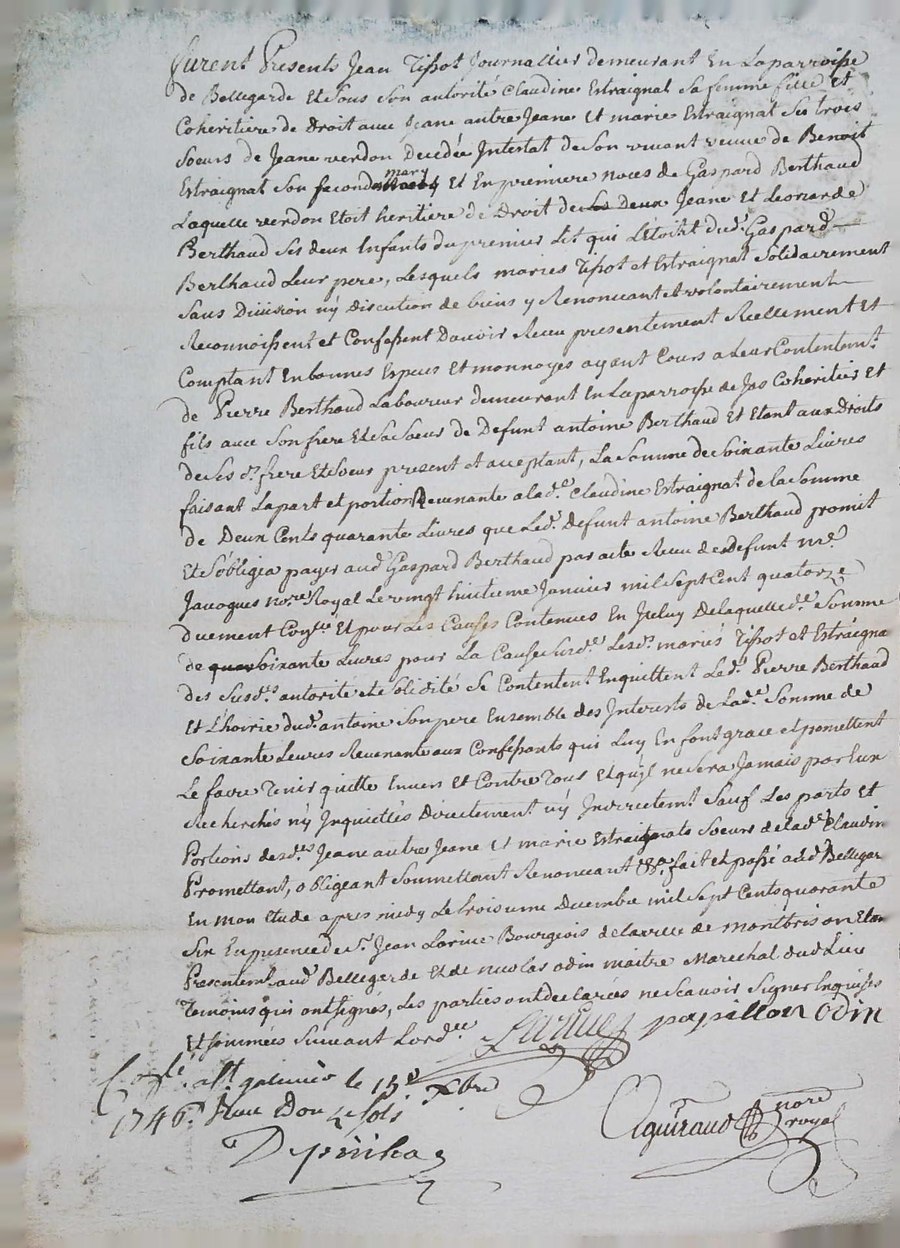 furent Presents Jean Tissot Journallier demeurant En Laparroisse
de Bellegarde Et sous son autorité Claudine Estraignat sa femme fille et
Coheritiere de Droit avec Jeane autre Jeane Et marie Estraignat ses trois
soeurs de Jeane verdon Decedée Intestat de son vivant veuve de Benoit
Estraignat son second mary Et En premiere noces de Gaspard Berthaud
Laquelle verdon Etoit heritiere de Droit de Les Deux Jeane Et Leonarde
Berthaud ses deux Infants du premier Lit qui L'étoient dud. Gaspard
Berthaud Leur pere, Lesquels mariés Tissot et Estraignat solidairement
sans Division ny Discution de biens y Renoncant et volontairement
Reconnoissent et Confessent Davoir Receu presentement Reellement Et
Comptant En bonnes Especes Et monnoyes ayant Cours a Leur Contentemt.
de Pierre Berthaud Laboureur demeurant En Laparroisse de Jas Coheritier Et
fils avec son frere Et sa soeur de Defunt antoine Berthaud Et Etant aux Droits
de ses d. frere Et soeur present et acceptant, La somme de soixante Livres
faisant La part et portion Revenante a lad.e Claudine Estraignat de la somme
de Deux Cents quarante Livres que Led. Defunt antoine Berthaud promit
Et s'obligea payer aud. Gaspard Berthaud par acte Receu de Defunt me.
Jacoques nore. Royal Le vingt huitieme Janvier mil sept Cent quatorze
duement Con.lé Et pour Les Causes Contenues En Iceluy De laquelle d.e somme
de quar soixante Livres pour La Cause susd.e Lesd. mariés Tissot et Estraigna
des susd.s autorité et solidité se Contentent Enquittent Led. Pierre Berthaud
Et Lhoirie dud. antoine son pere Ensemble des Interests de Lad.e somme de
soixante Livres Revenante aux Confessants qui Luy En font grace et promettent
Le faire Tenir quitte Envers Et Contre Tous Et qu'il ne sera Jamais par Eux
Recherchés ny Inquiettés Directement ny Indirectemt sauf Les parts Et
Portions desd.es Jeane autre Jeane Et marie Estraignats soeurs de lad.e Claudin
Promettant, obligeant soumettant Renoncant &c. fait et passé aud. Bellegar
En mon Etude apres midy Le troisieme Decembre mil sept Cents quarante
six En presence de sr. Jean Larive Bourgeois de la ville de montbrison Etan
Presentemt. aud. Bellegarde Et de nicolas odin maitre Marechal dud. Lieu
Temoins qui ont signés, Les parties ont declarées ne scavoir signer Enquises
Et sommées suivant Lord.ce
Larive papillon odin
Con.lé a St. galmier le 15e Xbre
1746. Receu Douze sols
Aguiraud nore royal